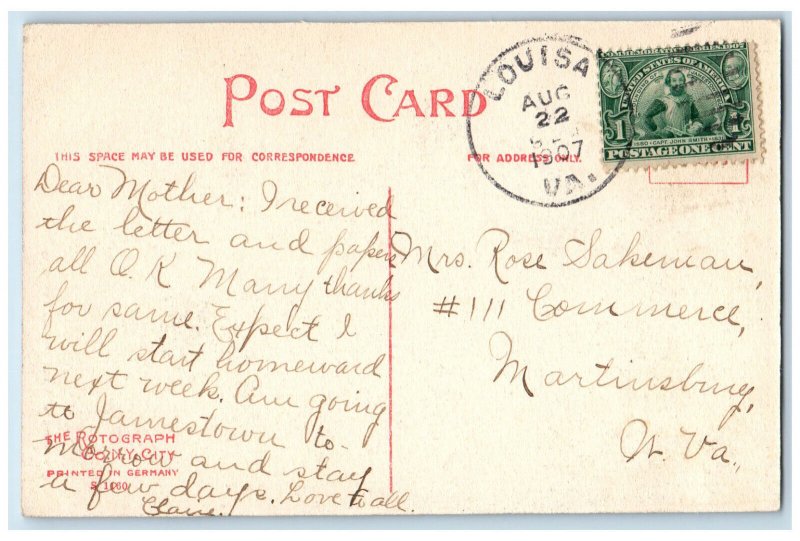 POST CARD
LOUISA
AUG
22
1907
VA.
UNITED STATES OF AMERICA
1580 CAPT. JOHN SMITH 1631
1 1
POSTAGE ONE CENT
THIS SPACE MAY BE USED FOR CORRESPONDENCE
FOR ADDRESS ONLY.
Dear Mother: I received
the letter and papers
all O.K Many thanks
for same. Expect I
will start homeward
next week. Am going
to Jamestown to-
morrow and stay
a few days. Love to all.
Mrs. Rose Sakeman,
#111 Commerce,
Martinsburg,
W. Va.,
THE ROTOGRAPH
CO., N.Y. CITY
PRINTED IN GERMANY